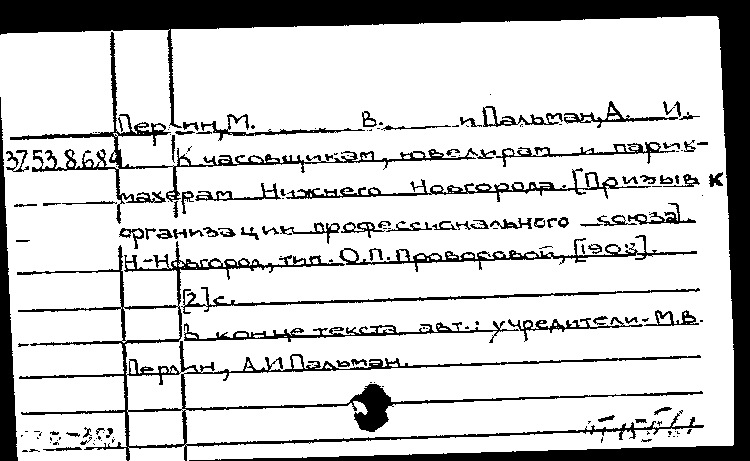 Перлин, М. В. и Пальман, А. И.
37.53.8.684. К часовщикам, ювелирам и парик-
махерам Нижнего Новгорода. [Призыв к
организации профессионального союза].
Н.-Новгород, тип. О.П. Проворовой, [1908].
[2] с.
В конце текста авт.: учредители-М.В.
Перлин, А.И Пальман.